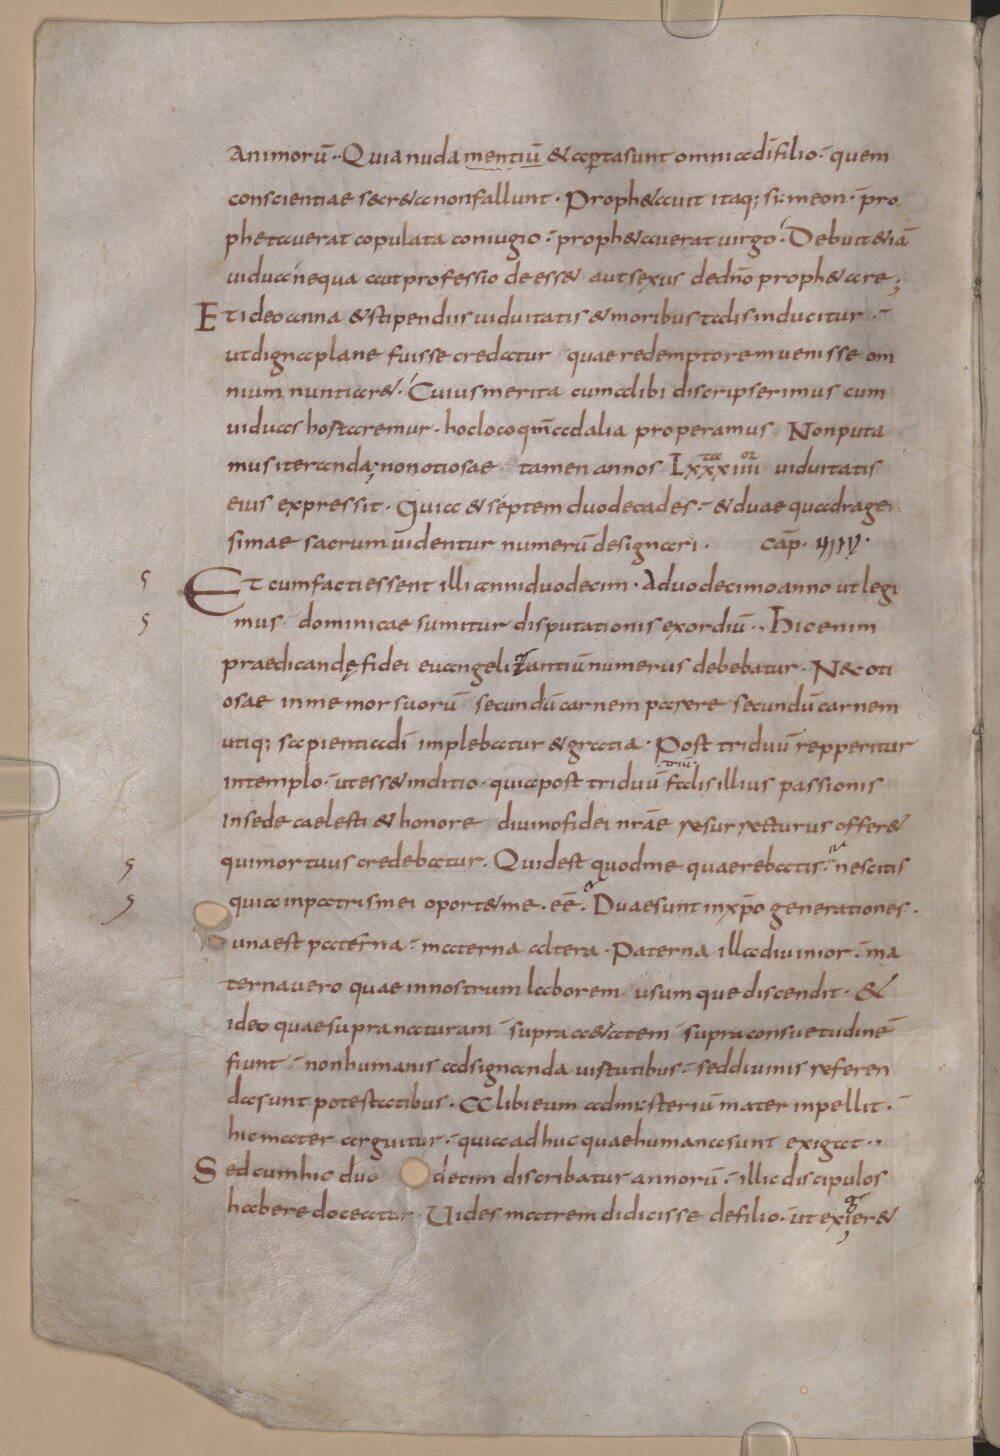 animorū·· Quia nuda mentiū & aꝑta sunt omnia dī filio·̄ quem
conscientiae secr&a non fallunt · Proph&auit itaq; simeon ·̄ pro
phetauerat copulata coniugio ·̄ proph&auerat uirgo · Debuit &iā
uidua nequa aut professio deess& aut sexus ded no proph&are;
Et ideo anna & stipendiis uiduitatis & moribus talis inducitur ·̄
ut digna plane fuisse credatur quae redemptorem uenisse om
nium nuntiar& · Cuius merita cum alibi discripserimus cum
uiduas hostaremur · hoc loco qm̄ ad alia properamus Non puta
mus iteranda; non otiosae tamen annos Lxxxiiii uiduitatis
eius expressit · Quia & septem duodecades ·̄ & duae quadragei
simae sacrum uidentur numerū designari · cap̄ · 
Et cum facti essent illi anni duodecim · A duodecimo anno ut legi
mus dominicae sumitur disputationis exordiū ·, Hic enim
praedicandę fidei euangelizantiū numerus debebatur · Nec oti
osae inmemor suorū secundū carnem parere secundū carnem
utiq; sapientia dī implebatur & gratia · Post triduū repperitur
in templo · ut ess& inditio · quia post triduū falis illius passionis
in sede caelesti & honore diuino fidei nr̄ae resurrecturus offer&
qui mortuus credebatur · Quid est quod me quaerebatis ·̄ nescitis
quia in patris mei oport& me · eē · Duae sunt in xp̄o generationes ·
una est paterna ·̄ materna altera · Paterna illa diuinior ·̄ ma
terna uero quae in nostrum laborem usumque discendit · &
ideo quae supra naturam supra a&atem supra consuetudinē
fiunt ·̄ non humanis adsignanda uirtutibus ·̄ sed diuinis referen
da sunt potestatibus · Alibi eum ad mysteriū mater inpellit ·̄
hic mater arguitur ·̄ quia adhuc quae humana sunt exigat ·,
Sed cum hic duodecim discribatur annorū ·̄ illic discipulos
habere doceatur · Uides matrem didicisse de filio · ut exiger&